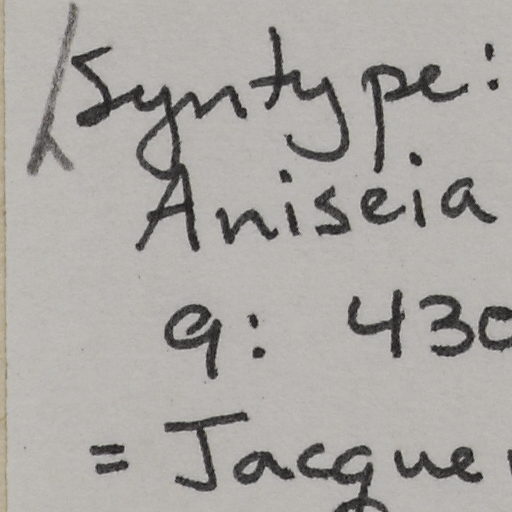 Syntype:
Aniseia
9: 430
= Jacque